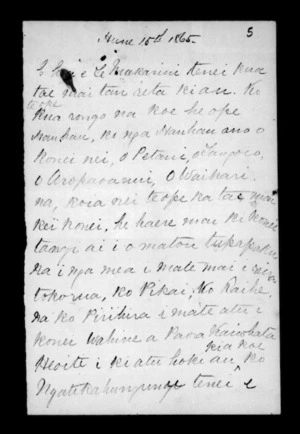 5
June 15th 1865.
E hoa e Te Makarini tenei kua
tae mai tau reta ki au. Ko
te ope
kua rongo na koe he ope
Hauhau, ko nga Hauhau ano o
konei nei, o Petani, o Tangoio,
o Aropaoanui, o Waihari
na, koia nei te ope ka tae mai
kei konei, he haere mai ki konei
tangi ai i o matou tupapaku
ka i nga mea i mate mai i reira
tokorua, ko Pikai, Ko Raihe,
ka ko Pirihira i mate atu i
konei Wahine a Paora Kaiwhata
kia koe
Heoite i ki atu hoki au, ko
Ngatikahungunu tenei e